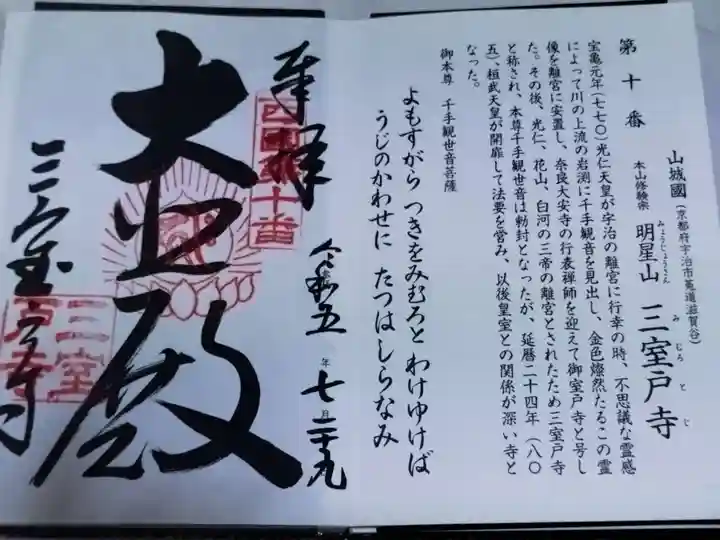 第十番
山城國(京都府宇治市莵道滋賀谷)
本山修験宗
明星山 三室戸寺
みょうじょうさん みむろとじ
宝亀元年(七七〇)光仁天皇が宇治の離宮に行幸の時、不思議な霊感
によって川の上流の岩渕に千手観音を見出し、金色燦然たるこの霊
像を離宮に安置し、奈良大安寺の行表禅師を迎えて御室戸寺と号し
た。その後、光仁、花山、白河の三帝の離宮とされたため三室戸寺
と称され、本尊千手観世音は勅封となったが、延暦二十四年(八〇
五)、桓武天皇が開扉して法要を営み、以後皇室との関係が深い寺と
なった。
御本尊 千手観世音菩薩
よもすがら つきをみむろと わけゆけば
うじのかわせに たつはしらなみ
奉拝
西國第十番
令和五年七月二十九
大悲殿
三室戸寺
三室戸寺